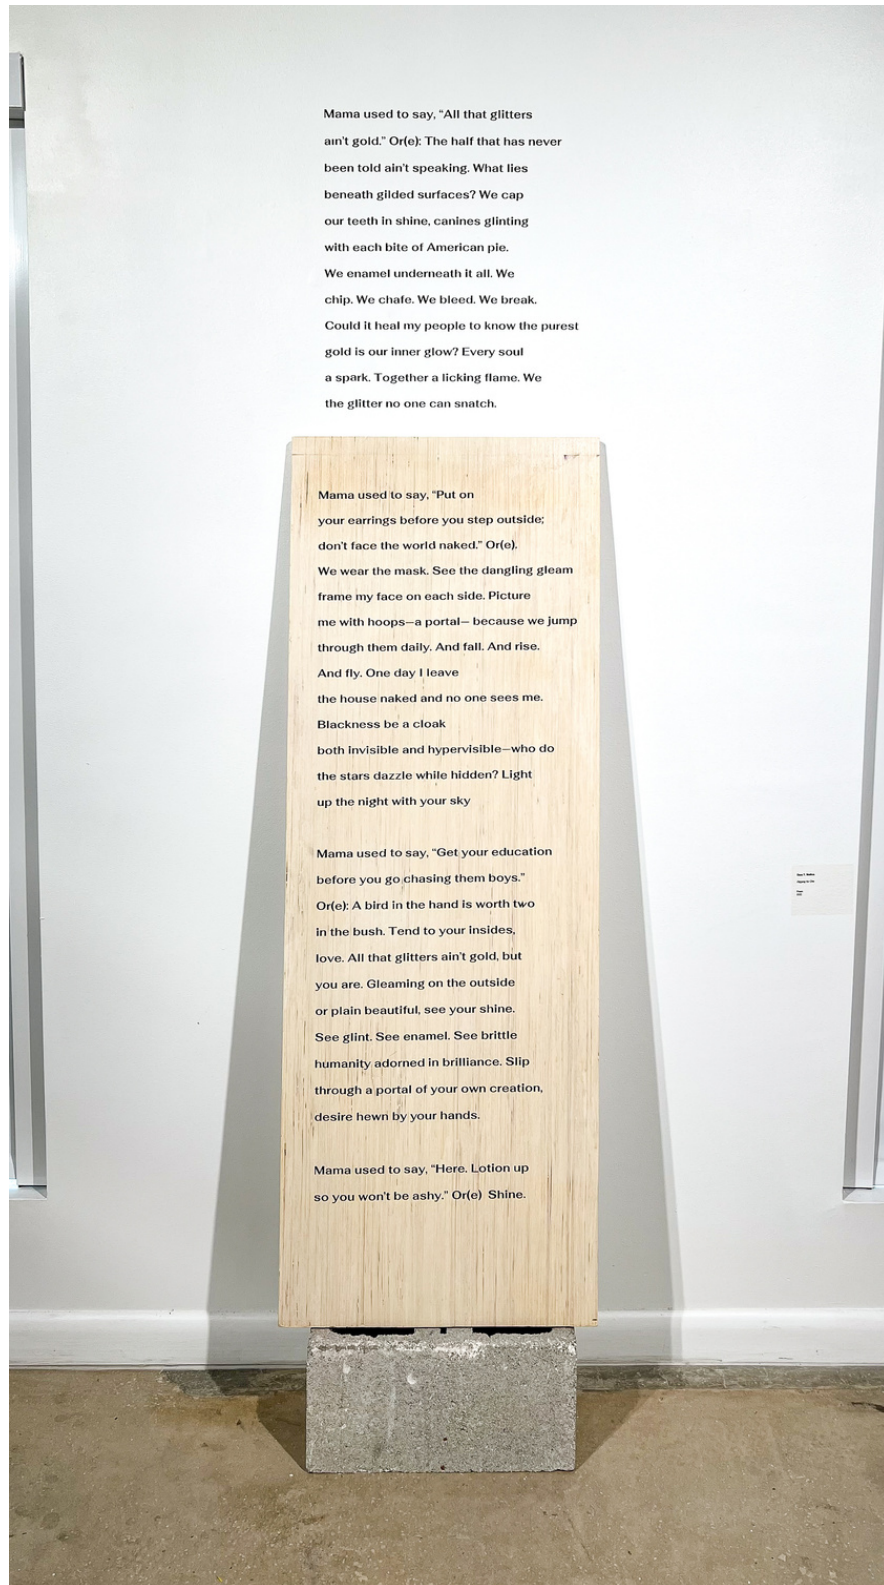 Mama used to say, “All that glitters
ain't gold.” Or(e): The half that has never
been told ain't speaking. What lies
beneath gilded surfaces? We cap
our teeth in shine, canines glinting
with each bite of American pie.
We enamel underneath it all. We
chip. We chafe. We bleed. We break.
Could it heal my people to know the purest
gold is our inner glow? Every soul
a spark. Together a licking flame. We
the glitter no one can snatch.
Mama used to say, “Put on
your earrings before you step outside;
don't face the world naked.” Or(e).
We wear the mask. See the dangling gleam
frame my face on each side. Picture
me with hoops—a portal— because we jump
through them daily. And fall. And rise.
And fly. One day I leave
the house naked and no one sees me.
Blackness be a cloak
both invisible and hypervisible—who do
the stars dazzle while hidden? Light
up the night with your sky
Mama used to say, “Get your education
before you go chasing them boys.”
Or(e): A bird in the hand is worth two
in the bush. Tend to your insides,
love. All that glitters ain't gold, but
you are. Gleaming on the outside
or plain beautiful, see your shine.
See glint. See enamel. See brittle
humanity adorned in brilliance. Slip
through a portal of your own creation,
desire hewn by your hands.
Mama used to say, “Here. Lotion up
so you won't be ashy.” Or(e) Shine.